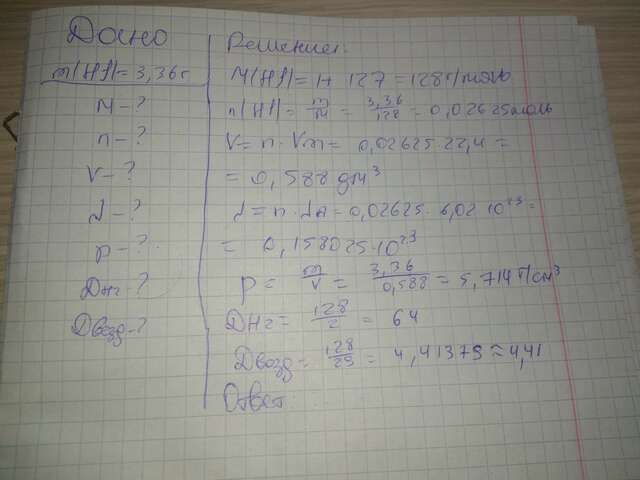 Дано
m(HJ) = 3,36г
M - ?
n - ?
V - ?
N - ?
p - ?
DH2 - ?
Dвозд - ?
Решение:
M(HJ) = 1 + 127 = 128 г/моль
n(HJ) = m/M = 3,36/128 = 0,02625 моль
V = n · Vm = 0,02625 · 22,4 =
= 0,588 дм³
N = n · NA = 0,02625 · 6,02 · 10²³ =
= 0,158025 · 10²³
p = m/V = 3,36/0,588 = 5,714 г/см³
DH2 = 128/2 = 64
Dвозд = 128/29 = 4,41379 ≈ 4,41
Ответ: